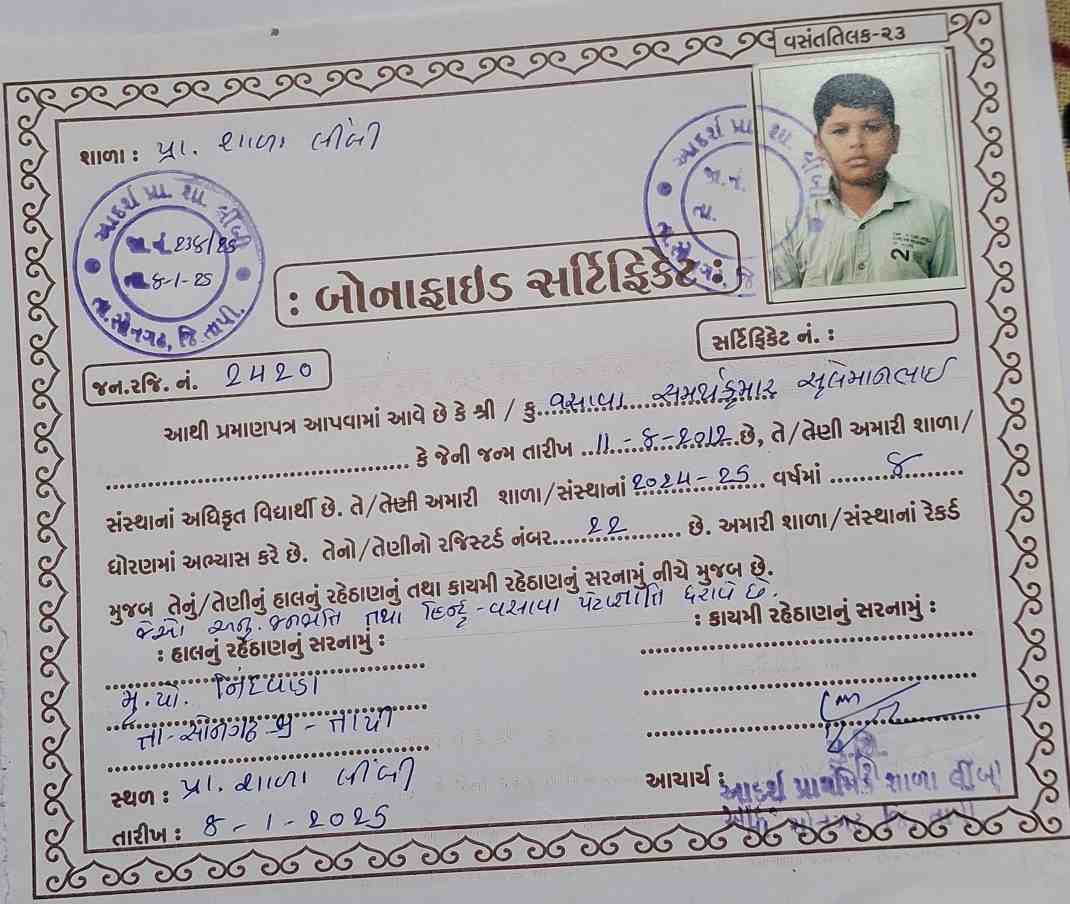 વસંતતિલક-૨૩
શાળા : પ્રા. શાળા લીંબી
આદર્શ પ્રા. શા. લીંબી
જા.નં. ૨૩૬/૨૫
તા. ૪-૧-૨૫
તા.સોનગઢ, જિ.તાપી.
આદર્શ પ્રા. શા. લીંબી
જા.નં.
તા.
તા.સોનગઢ, જિ
: બોનાફાઇડ સર્ટિફિકેટ :
સર્ટિફિકેટ નં. :
જન.રજિ. નં. ૨૫૨૦
આથી પ્રમાણપત્ર આપવામાં આવે છે કે શ્રી / કુ. વસાવા સમર્થકુમાર સુલેમાનભાઈ
કે જેની જન્મ તારીખ ૧૧-૪-૨૦૧૨ છે, તે/તેણી અમારી શાળા/
સંસ્થાનાં અધિકૃત વિદ્યાર્થી છે. તે/તેણી અમારી શાળા/સંસ્થાનાં ૨૦૨૫-૨૫ વર્ષમાં ૪
ધોરણમાં અભ્યાસ કરે છે. તેનો/તેણીનો રજિસ્ટર્ડ નંબર ૨૨ છે. અમારી શાળા/સંસ્થાનાં રેકર્ડ
મુજબ તેનું/તેણીનું હાલનું રહેઠાણનું તથા કાયમી રહેઠાણનું સરનામું નીચે મુજબ છે.
જેઓ અનુ. જનજાતિ તથા હિન્દુ-વસાવા પેટાજ્ઞાતિ ધરાવે છે.
: હાલનું રહેઠાણનું સરનામું :
: કાયમી રહેઠાણનું સરનામું :
મુ.પો. નિંદવાડા
તા-સોનગઢ જી - તાપી
સ્થળ : પ્રા. શાળા લીંબી
આચાર્ય :
આદર્શ પ્રાથમિક શાળા લીંબી
તારીખ : ૪-૧-૨૦૨૫